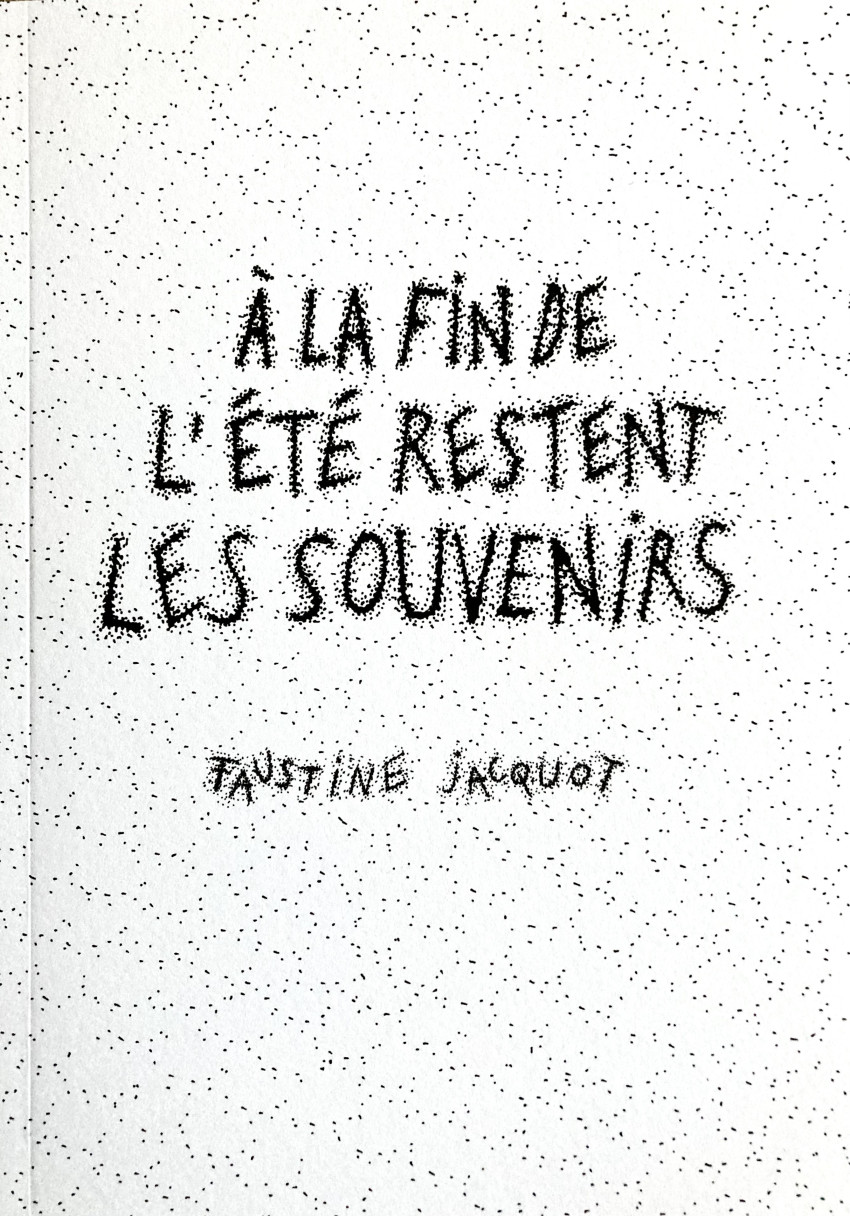 À LA FIN DE
L'ÉTÉ RESTENT
LES SOUVENIRS
FAUSTINE JACQUOT